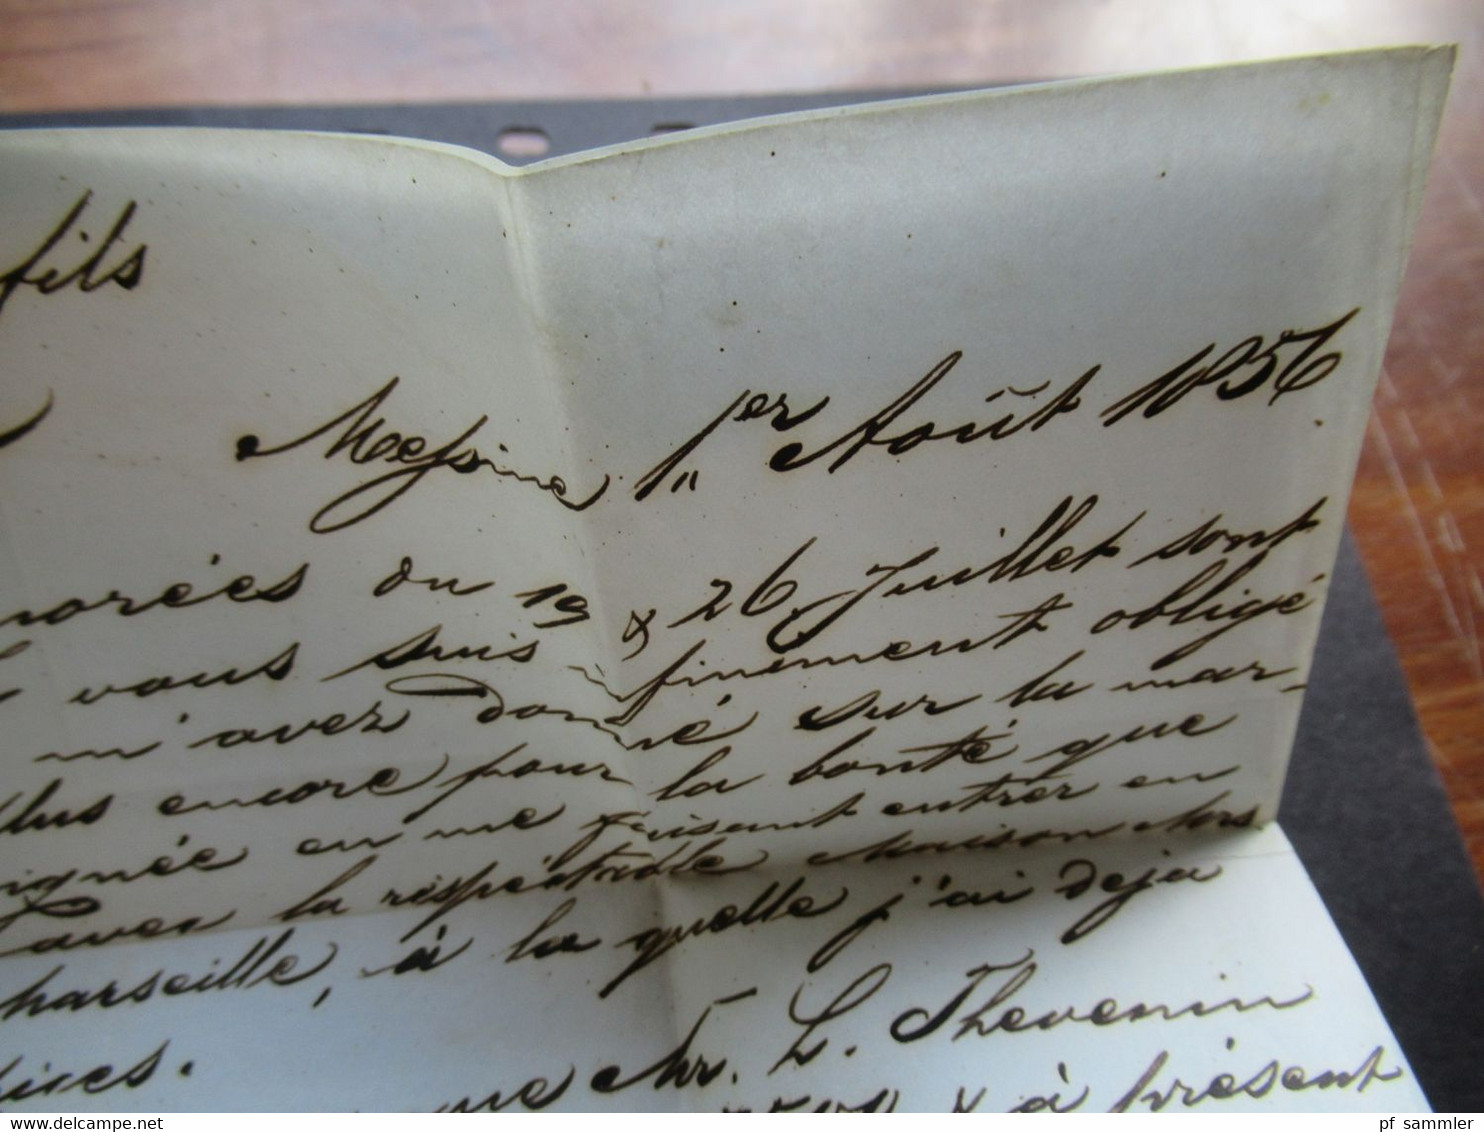 fils
Messine 1er Août 1856
norées du 19 & 26 Juillet sont
vous suis infiniment obligé
m'avez donné sur la mar-
plus encore pour la bonté que
ignée en me faisant entrer en
avec la respectable Maison Mrs
Marseille, à la quelle j'ai deja
ices.
que Mr. L. Thevenin
& à présent
pf sammler